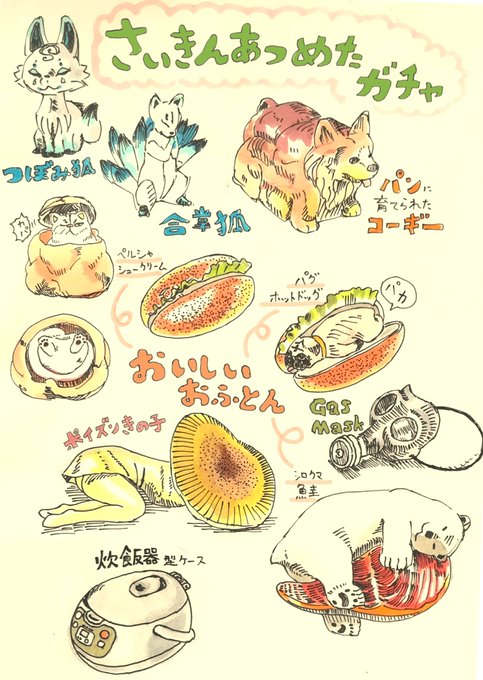 さいきんあつめた
ガチャ
つぼみ狐
合掌狐
パンに
育てられた
コーギー
ペルシャ
シュークリーム
パグ
ホットドッグ
パカ
おいしい
おふとん
Gas
mask
ポイズンきの子
シロクマ
鮭
炊飯器型ケース